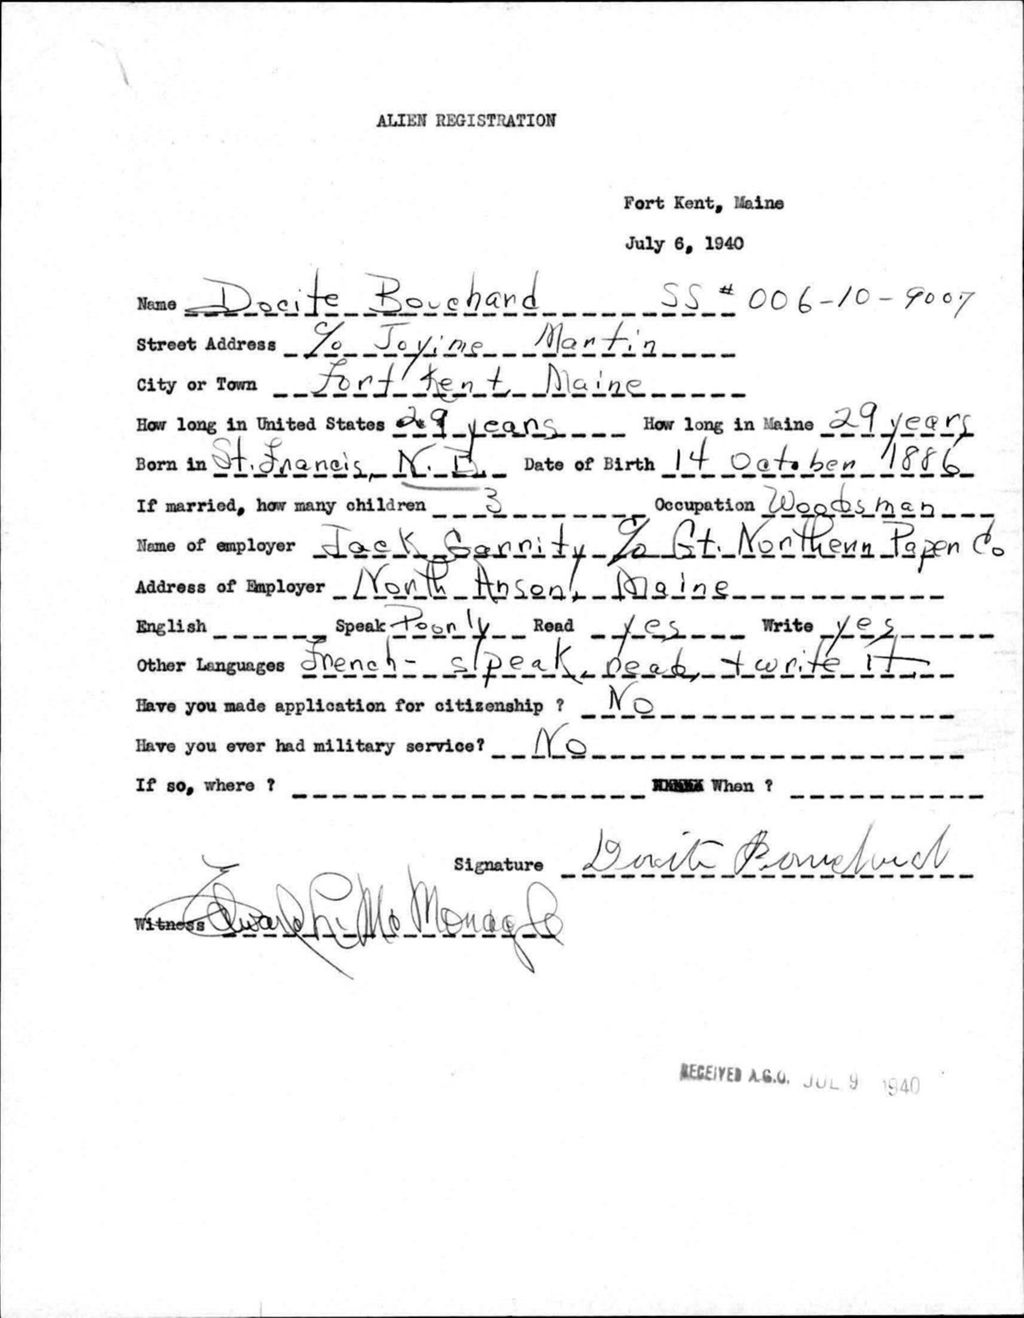 ALIEN REGISTRATION
Fort Kent, Maine
July 6, 1940
Name Docite Bouchard SS # 006-10-9007
Street Address c/o Joyime Martin
City or Town Fort Kent, Maine
How long in United States 29 years How long in Maine 29 years
Born in St. Francis, N. B. Date of Birth 14 October 1886
If married, how many children 3 Occupation Woodsman
Name of employer Jack Garrity c/o Gt. Northern Paper Co
Address of Employer North Anson, Maine
English Speak Poorly Read yes Write yes
Other Languages French - speak, read, + write it
Have you made application for citizenship ? No
Have you ever had military service? No
If so, where ? When ?
Signature Docite Bouchard
Witness Edward L. McMonagle
RECEIVED A.G.O. JUL 9 1940